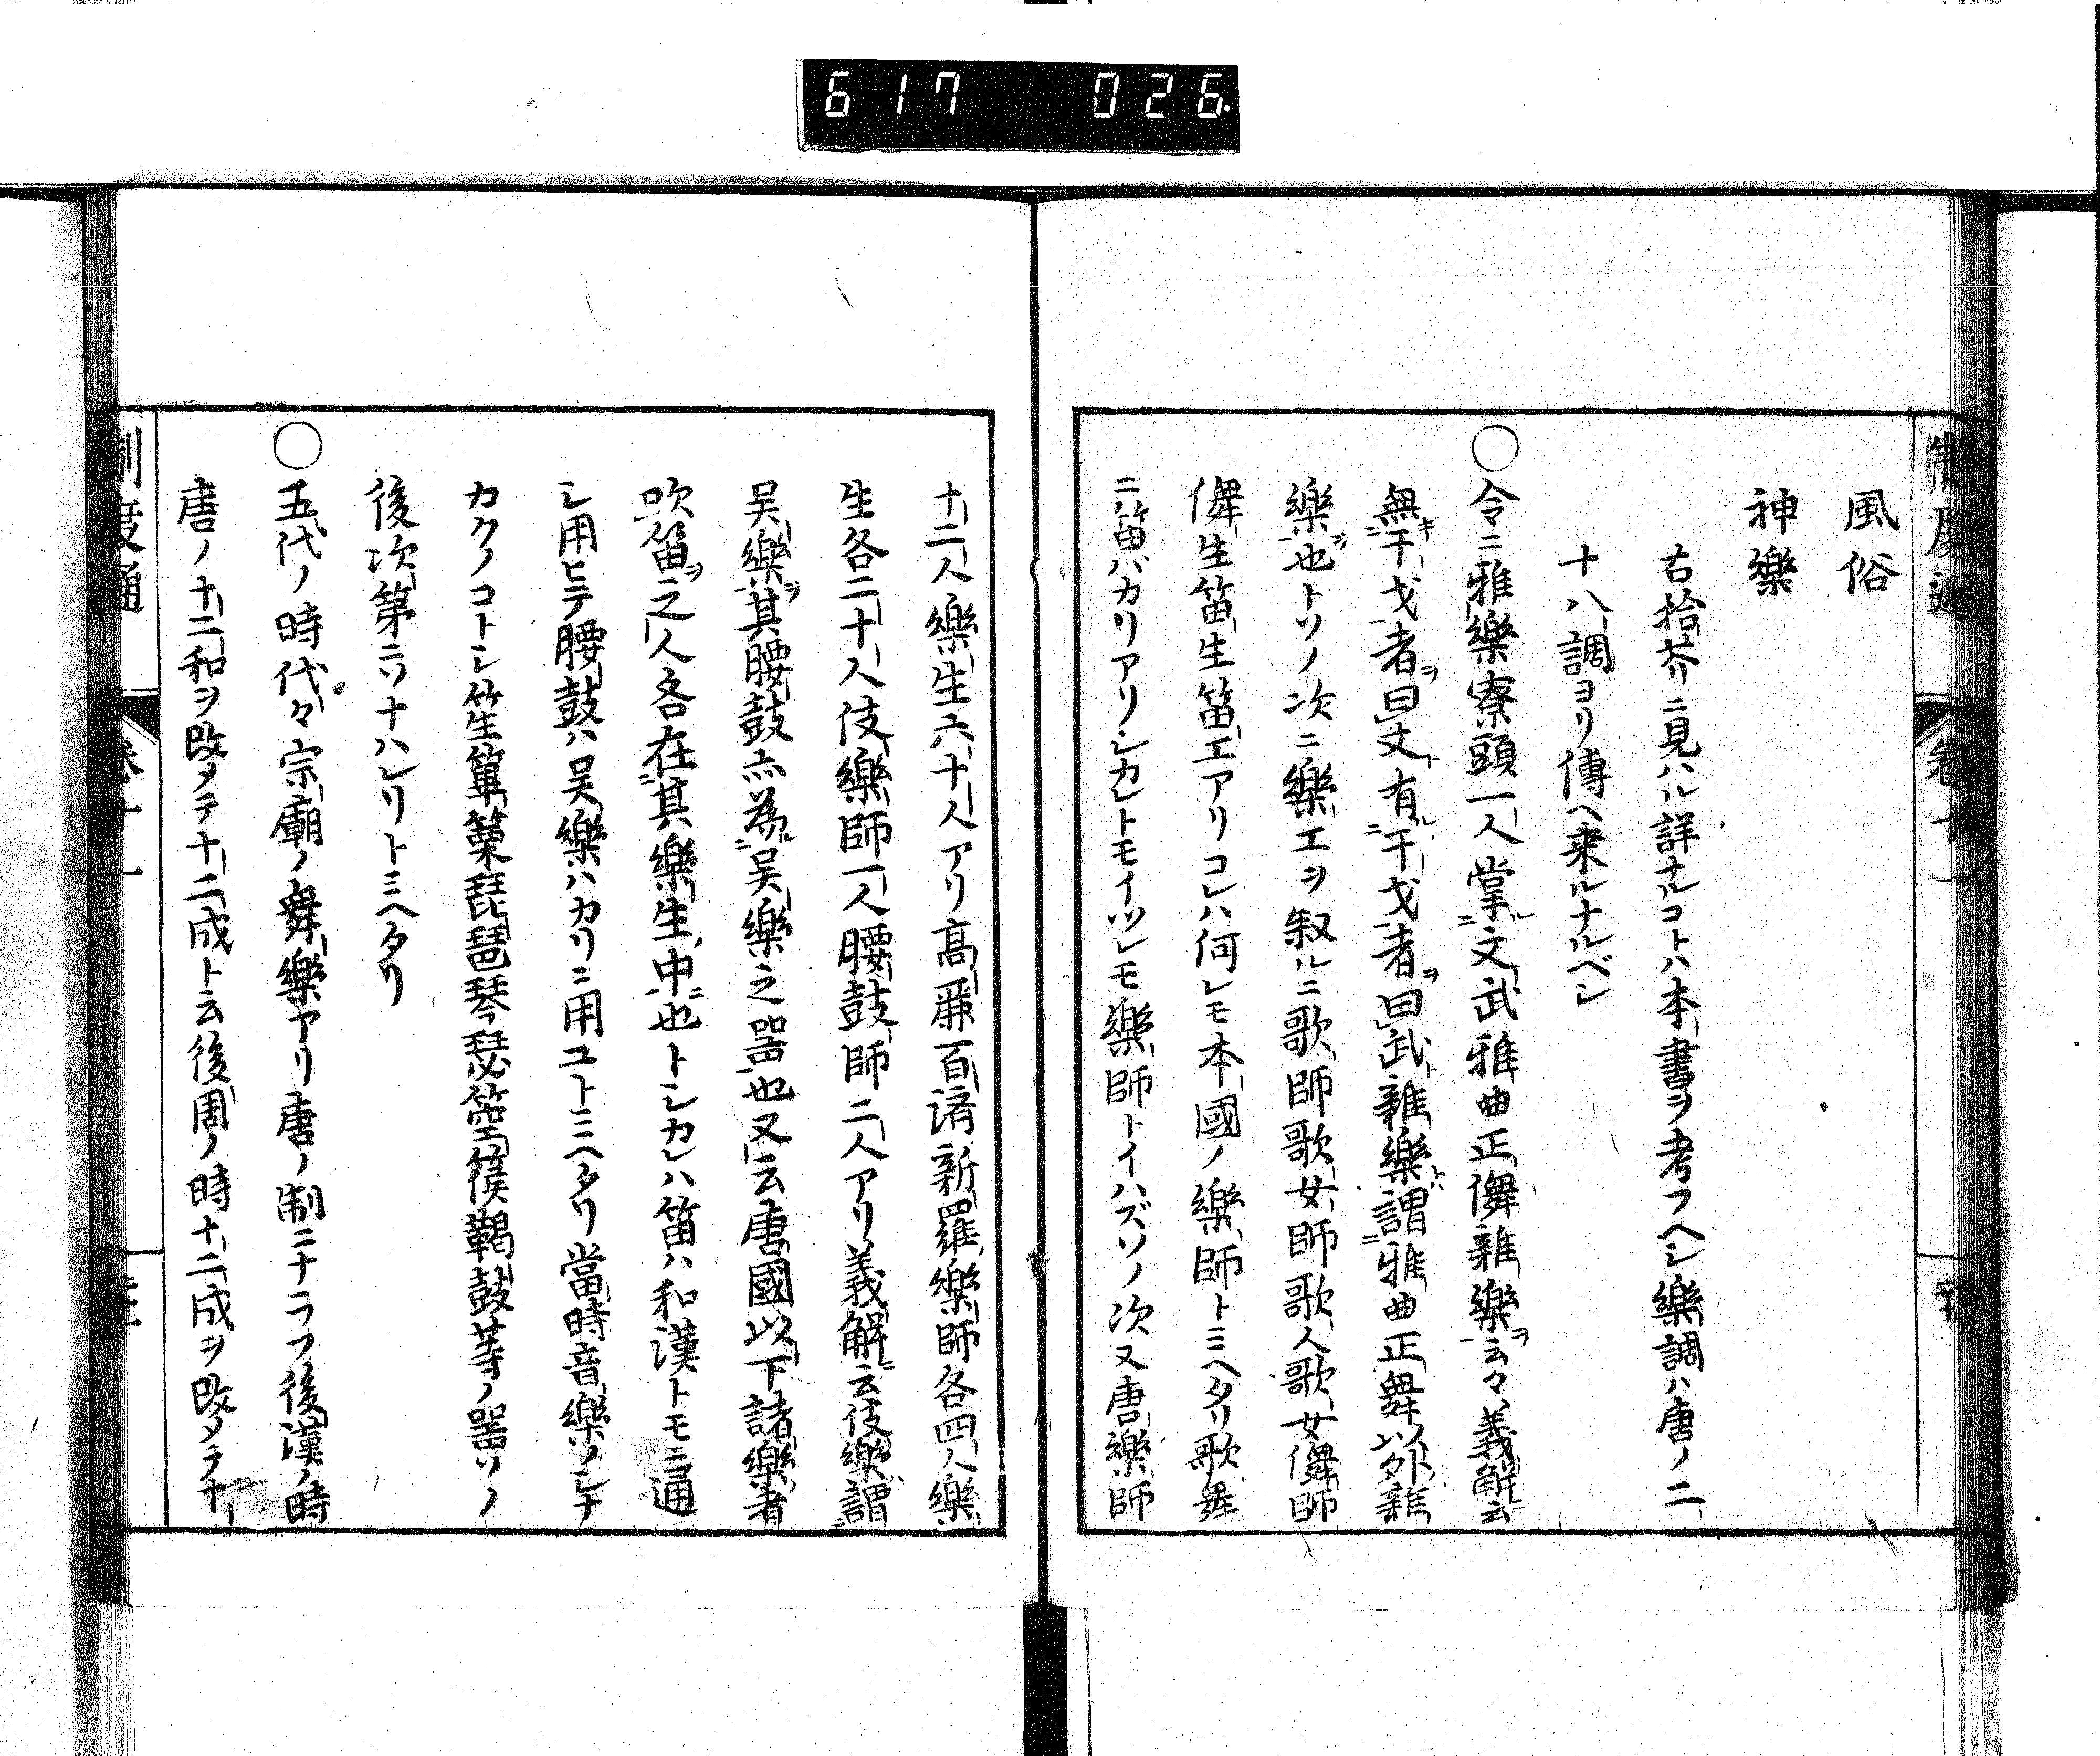 617 026
制度通 卷十一
風俗
神樂
右拾芥ニ見ハル詳ナルコトハ本書ヲ考フヘシ樂調ハ唐ノ二
十八調ヨリ傳ヘ来ルナルベシ
〇令ニ雅樂寮頭一人掌文武雅曲正儛雜樂ヲ云々義解云
無干戈者ヲ曰文ト有干戈者ヲ曰武ト雜樂ハ謂雅曲正舞以外雜
樂也トソノ次ニ樂工ヲ叙ルニ歌師歌女師歌人歌女儛師
儛生笛生笛工アリコレハ何レモ本國ノ樂師トミヘタリ歌舞
ニ笛ハカリアリシカレトモイツレモ樂師トイハズソノ次又唐樂師
十二人樂生六十人アリ高麗百済新羅樂師各四人樂
生各二十人伎樂師一人腰鼓師二人アリ義解ニ云伎樂謂
吴樂ヲ其腰鼓亦為吴樂之器也又云唐國以下諸樂者
吹笛ヲ之人各在其樂生中ニ也トシカレハ笛ハ和漢トモニ通
シ用ヒテ腰鼓ハ吴樂ハカリニ用ユトミヘタリ當時音樂ノシナ
カクノコトシ笙篳篥琵琶琴瑟箜篌鞨鼓等ノ器ソノ
後次第ニソナハレリトミヘタリ
〇五代ノ時代々宗廟ノ舞樂アリ唐ノ制ニナラフ後漢ノ時
唐ノ十二和ヲ改メテ十二成ト云後周ノ時十二成ヲ改メテ十
制度通 卷十一